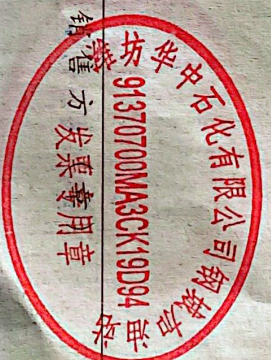 坊华中石化有限公司钢城油站
91370700MA3CK19D94
销售方
发票专用章